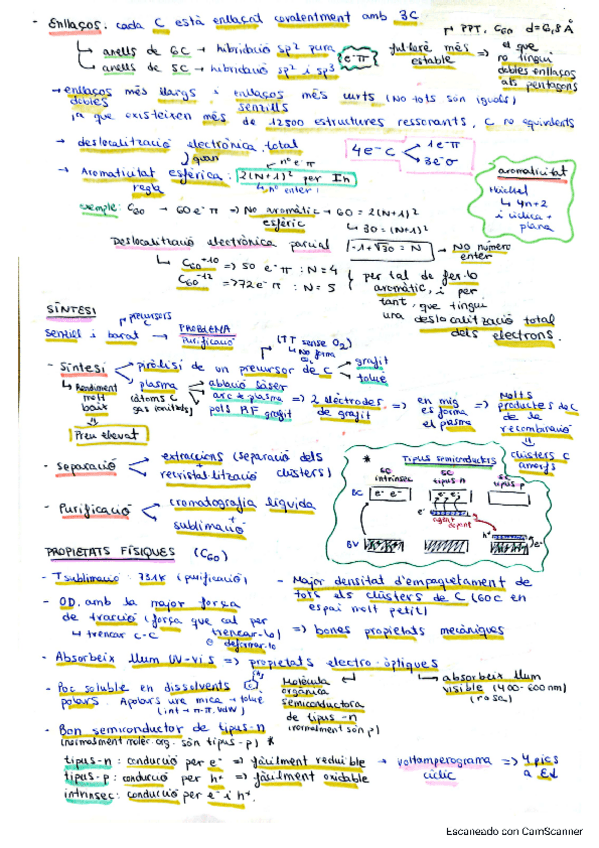 - Enllaços. cada C està enllaçat covalentment amb 3C
PPT. C60 d=6,8 Å
anells de 6C → hibridació sp² pura
anells de 5C → hibridació sp² i sp³
e⁻π
ful·lerè més estable ⇒ el que no tingui dobles enllaços als pentàgons
→ enllaços més llargs i enllaços més curts (No tots són iguals)
dobles senzills
ja que existeixen més de 12500 estructures ressonants, C no equivalents
→ deslocalització electrònica total
4e⁻C 1e⁻π 3e⁻σ
→ Aromaticitat esfèrica: 2(N+1)² per Ih
regla quan nº e⁻π nº enter!
aromaticitat
Hückel
↳ 4n+2
i cíclica +
plana
exemple: C60 → 60e⁻π ⇒ No aromàtic → 60 = 2(N+1)²
esfèric ↳ 30 = (N+1)²
Deslocalització electrònica parcial -1+√30 = N → No número enter
↳ C60⁺¹⁰ ⇒ 50 e⁻π : N=4
C60⁻¹² ⇒ 72e⁻π : N=5
per tal de fer-lo aromàtic, i per tant, que tingui una deslocalització total dels electrons.
SÍNTESI
precursors
senzill i barat → PROBLEMA
Purificació
(TT sense O2)
↳ No forma
- Síntesi piròlisi de un precursor de C grafit
toluè
↳ Rendiment molt baix
plasma
(àtoms C gas ionitzats)
ablació làser
arc de plasma ⇒ 2 elèctrodes de grafit ⇒ en mig es forma el plasma ⇒ Molts productes de C de la recombinació
pols RF grafit
Preu elevat
clústers C amorfs
- Separació extraccions (separació dels clústers)
recristal·lització
- Purificació cromatografia líquida
+
sublimació
* Tipus semiconductors
SC intrínsec SC tipus-n SC tipus-p
BC e⁻ e⁻ e⁻ e⁻
e⁻
agent dopant
h⁺
BV
PROPIETATS FÍSIQUES (C60)
- Tsublimació: 731K (purificació)
- Major densitat d'empaquetament de tots els clústers de C (60C en espai molt petit)
- OD. amb la major força de tracció (força que cal per trencar-lo)
↳ trencar C-C o deformar-lo
⇒ bones propietats mecàniques
- Absorbeix llum UV-vis ⇒ propietats electro-òptiques
- Poc soluble en dissolvents polars. Apolars una mica → toluè
(int → π-π, VdW)
CH3
Molècula orgànica semiconductora de tipus-n
(normalment són p)
absorbeix llum visible (400-600nm)
(rosa)
- Bon semiconductor de tipus-n
(normalment molèc. org. són tipus-p) *
tipus-n: conducció per e⁻ ⇒ fàcilment reduïble → voltamperograma cíclic ⇒ 4 pics a E↓
tipus-p: conducció per h⁺ ⇒ fàcilment oxidable
intrínsec: conducció per e⁻ i h⁺.
Escaneado con CamScanner